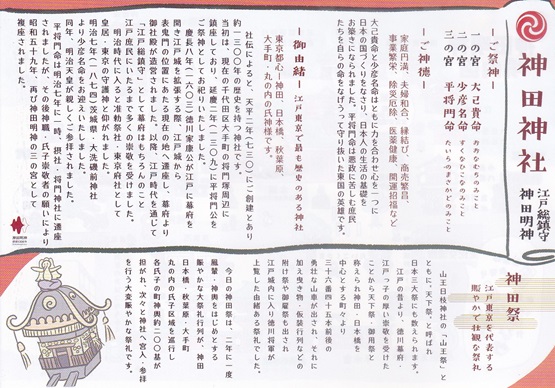 神田神社
江戸総鎮守
神田明神
―ご祭神―
一の宮 大己貴命 おおなむちのみこと
二の宮 少彦名命 すくなひこなのみこと
三の宮 平将門命 たいらのまさかどのみこと
―ご神徳―
家庭円満、夫婦和合、縁結び、商売繁昌、
事業繁栄、除災厄除、医薬健康、開運招福など
大己貴命と少彦名命はともに力を合わせ心を一つに
日本の国づくりをなさり、日本人の生活の基礎を
お築きになりました。平将門命は悪政に苦しむ庶民
たちを自らの命をなげうって守り抜いた東国の英雄です。
―御由緒― 江戸東京で最も歴史のある神社
東京都心―神田、日本橋、秋葉原、
大手町・丸の内の氏神様です。
社伝によると、天平二年(七三〇)にご創建とあり
約一三〇〇年の歴史を持つ神社です。
当初は、現在の千代田区大手町の将門塚周辺に
鎮座しており、延慶二年(一三〇九)に平将門公を
ご祭神としてお祀りいたしました。
慶長八年(一六〇三)徳川家康公が江戸に幕府を
開き江戸城を拡張する際、江戸城から
表鬼門の位置にあたる現在の地へ遷座し、幕府より
御社殿が造営されました。以降、江戸時代を通じて
「江戸総鎮守」として、幕府をはじめ
江戸庶民にいたるまで多くの崇敬を受けました。
明治時代に入ると准勅祭社・東京府社として
皇居・東京の守護神と仰がれました。
明治七年(一八七四)茨城県・大洗磯前神社
より少彦名命をお迎えいたしました。
同年、明治天皇が親しくご参拝になられました。
平将門命は明治七年に一時、摂社・将門神社に遷座
されましたが、その後神職、氏子崇敬者の願いにより
昭和五十九年、再び神田明神の三の宮として
複座されました。
神田祭
江戸東京を代表する
賑やかで壮観な祭礼
山王日枝神社の「山王祭」と
ともに、天下祭、と呼ばれ
日本三大祭にも数えられます。
江戸の昔より、徳川幕府・
江戸っ子の厚い崇敬を受けた
ことから天下祭・御用祭と
称えられ神田・日本橋を
中心とする町々より
三十六番四十五本前後の
勇壮な山車が出され、それに
加え曳き物・仮装行列などの
附け祭や御雇祭も出され
江戸城内に入り徳川将軍が
上覧した由緒ある祭礼でした。
今日の神田祭は、二年に一度
鳳輦・神輿をはじめとする
賑やかな祭礼行列が、神田
日本橋・秋葉原・大手町・
丸の内の氏子区域を巡行し
各氏子の町神輿約二〇〇基が
担がれ、次々と神社へ宮入・参拝
を行う大変賑やかな祭礼です。